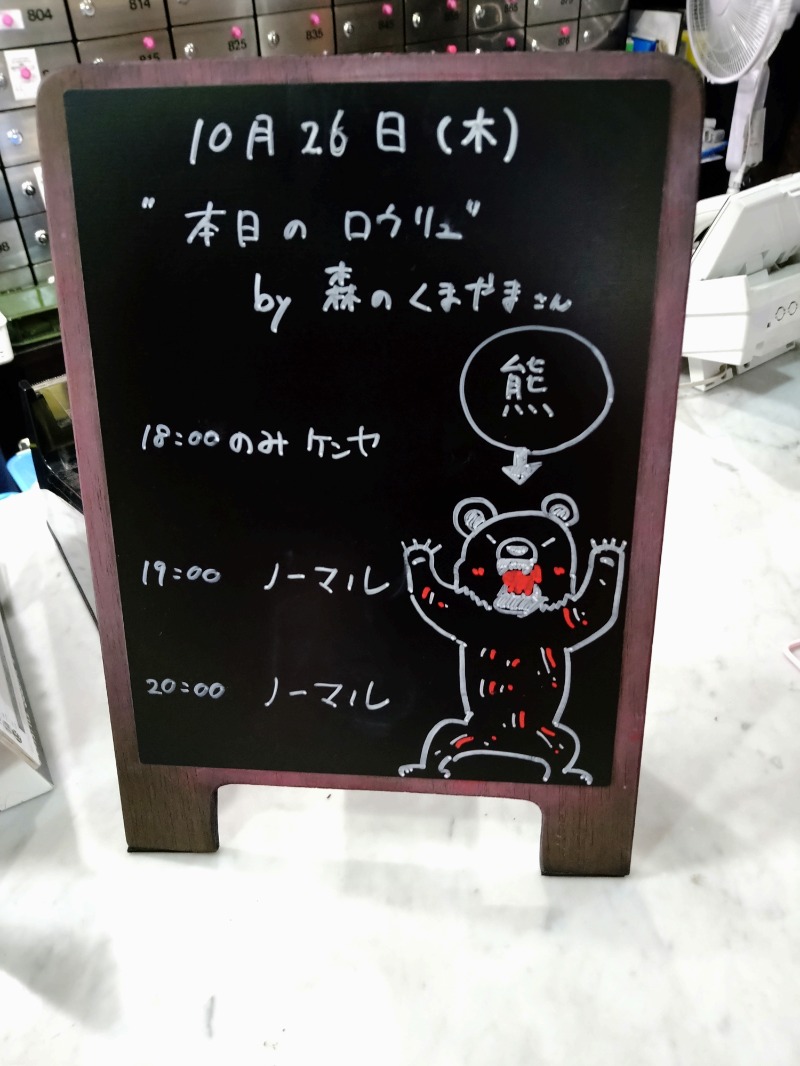 804
814
815
825
835
845
10月26日(木)
"本日のロウリュ"
by 森のくまやまさん
熊
18:00のみ ケンヤ
19:00 ノーマル
20:00 ノーマル